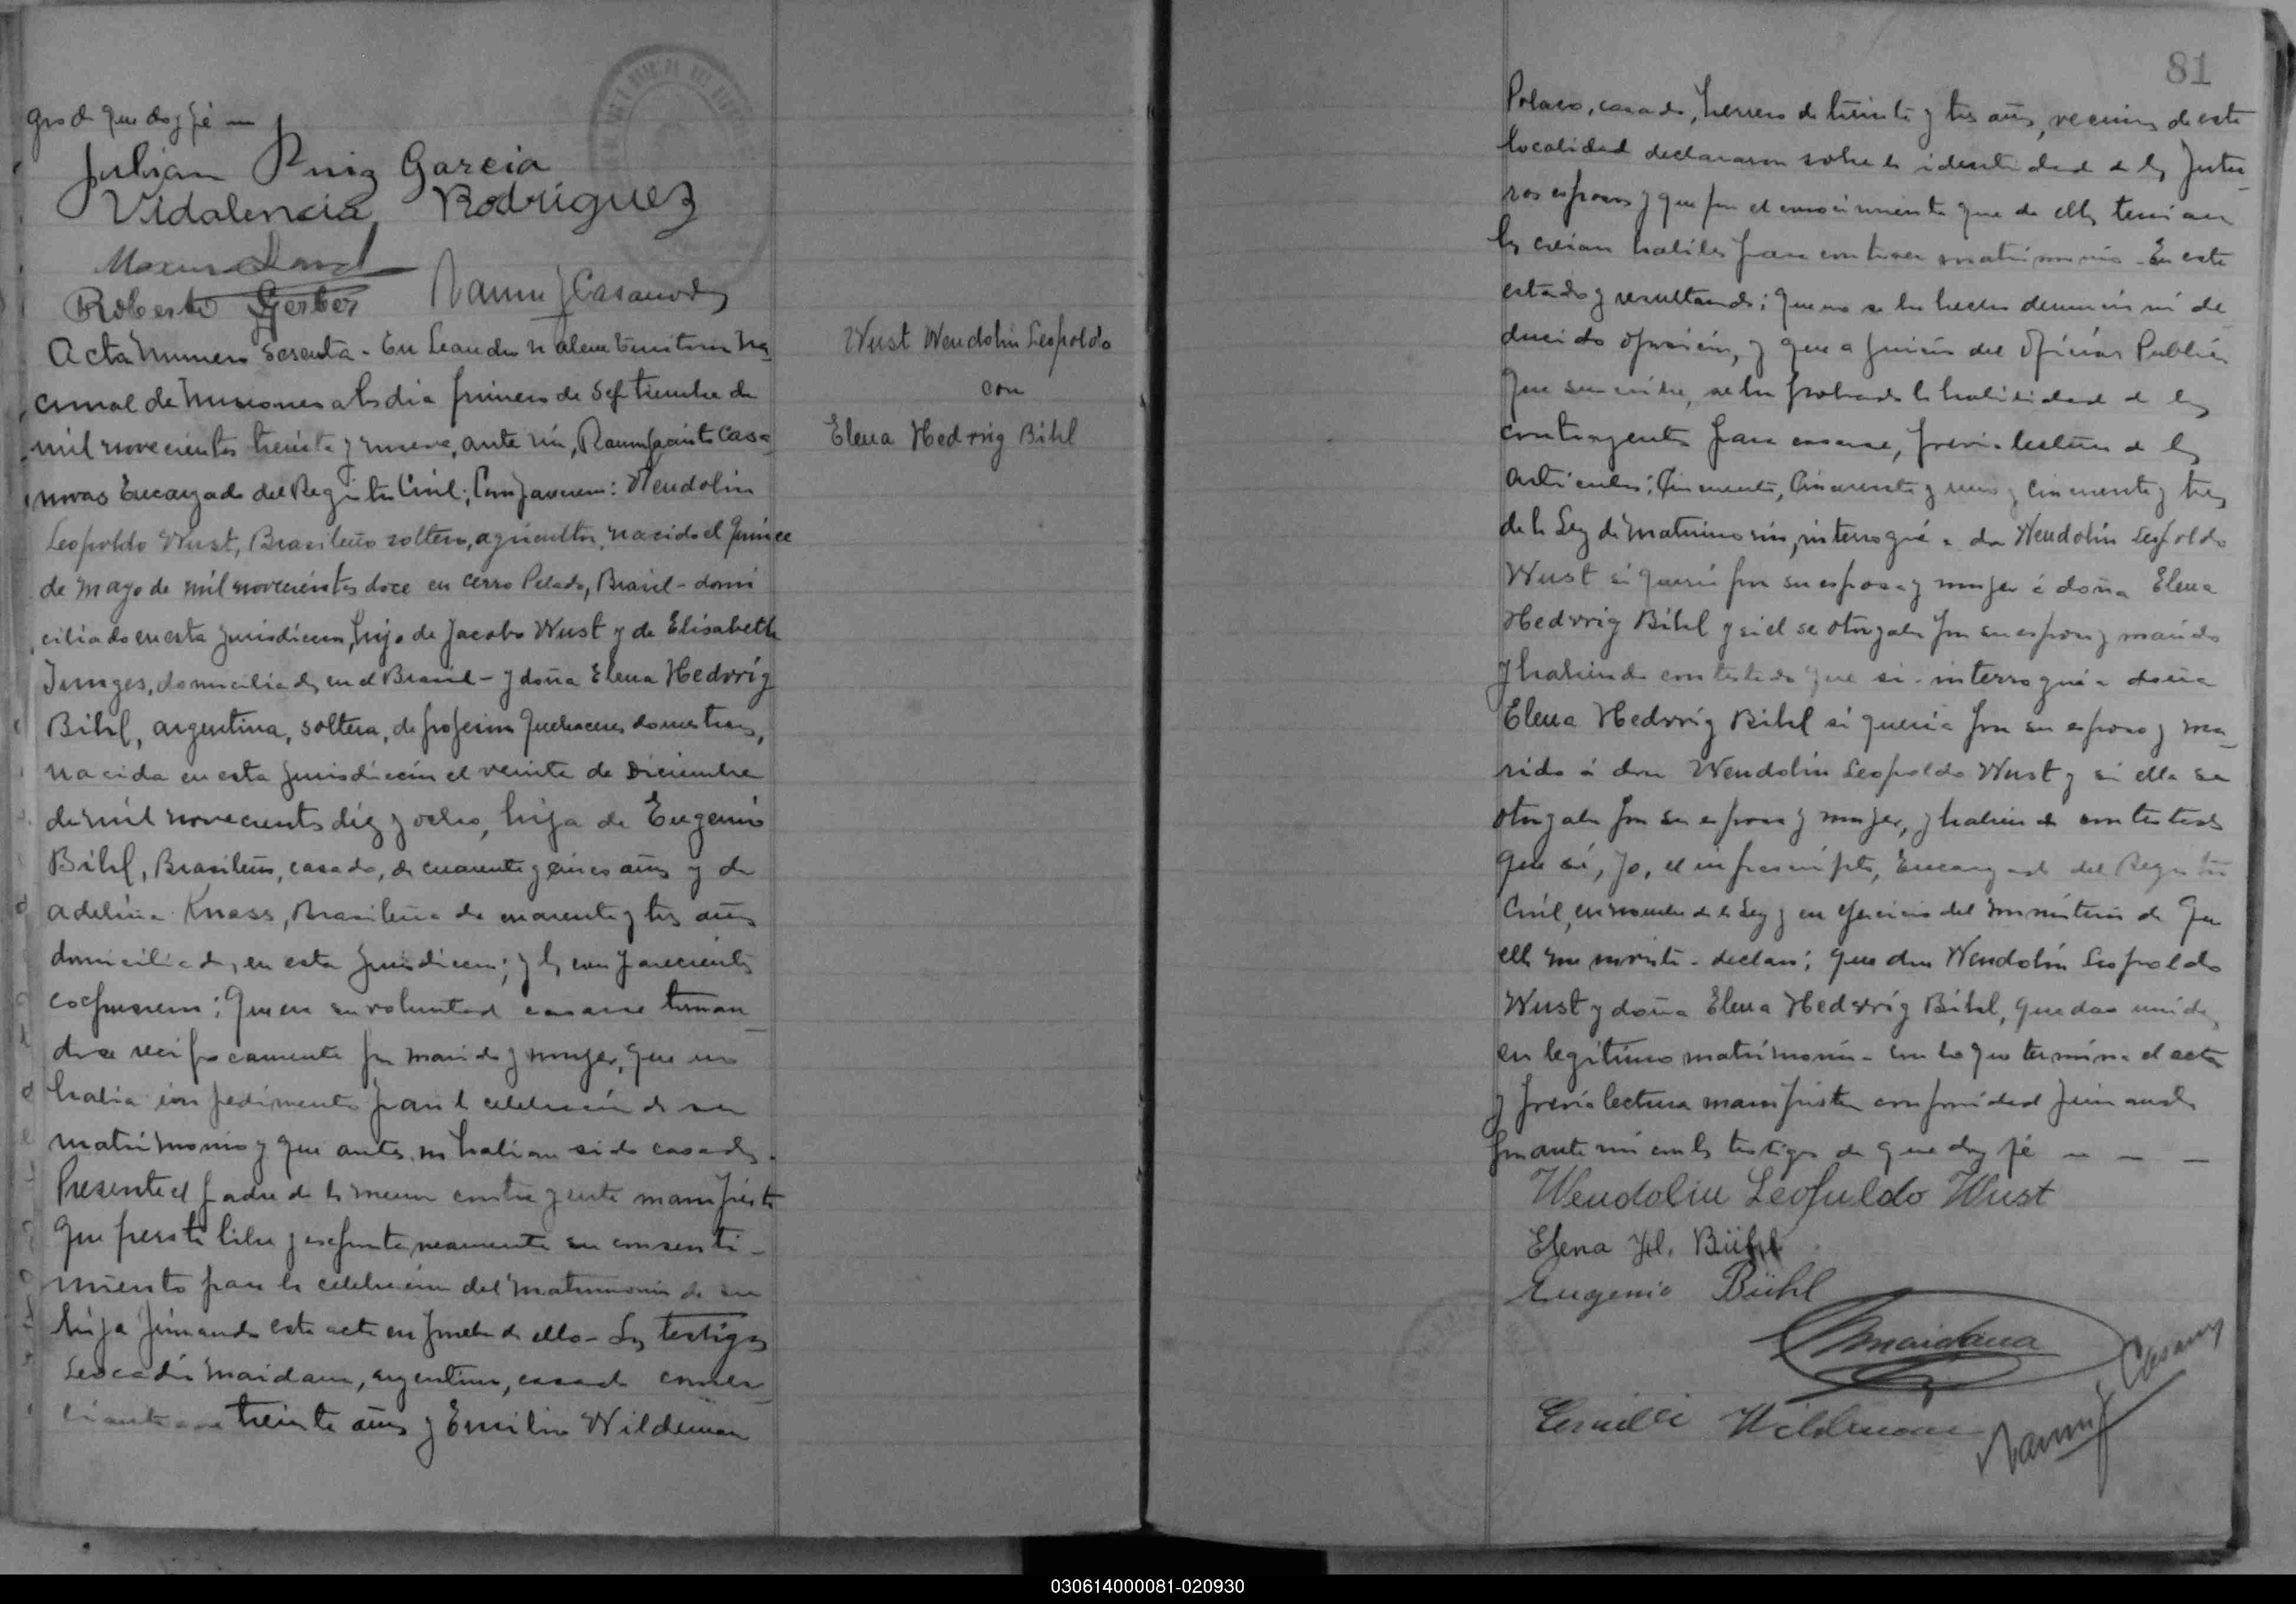 gro de que doy fé —
Julian Puig Garcia
Vidalencia Rodriguez
Roberto Gerber
Ramn J Casanovas
Acta numero sesenta - En Leandro N alem territorio Na
cional de Misiones a los dia primero de Septiembre de
mil novecientos treinta y nueve, ante mi, Ramn Jacinto Casa
novas Encargado del Registro Civil; Comparecen: Wendolin
Leopoldo Wust, Brasileño soltero, agricultor, nacido el quince
de mayo de mil novecientos doce en Cerro Pelado, Brasil - domi
ciliado en esta jurisdiccion, hijo de Jacobo Wust y de Elisabeth
Junges, domiciliados en el Brasil - y doña Elena Hedwig
Bihl, argentina, soltera, de profesion quehaceres domesticos,
nacida en esta jurisdicción el veinte de Diciembre
de mil novecientos diez y ocho, hija de Eugenio
Bihl, Brasileño, casado, de cuarenta y cinco años y de
adelina Knass, Brasileña de cuarenta y tres años
domiciliados, en esta jurisdiccion; y los comparecientes
expusieron: Que era su voluntad casarse toman
dose reciprocamente por marido y mujer, que no
habia impedimento para la celebración de su
matrimonio y que antes no habian sido casados.
Presente el padre de la menor contrayente manifiesta
que presta libre y espontaneamente su consenti-
miento para la celebración del matrimonio de su
hija firmando este acta en prueba de ello - Los testigos
Leocadio Maidana, argentino, casado comer
ciante treinta años y Emilio Wildeman
Wust Wendolin Leopoldo
con
Elena Hedwig Bihl
81
Polaco, casado, herrero de treinta y tres años, vecinos de esta
localidad declararon sobre la identidad de los futu-
ros esposos y que por el conocimiento que de ellos tenian
los creian habiles para contraer matrimonio - En este
estado y resultando: que no se ha hecho denuncia ni de
ducido oposición, y que a juicio del Oficial Publico
que suscribe, se ha probado la habilidad de los
contrayentes para casarse, previa lectura de los
articulos: Cincuenta, Cincuenta y uno y cincuenta y tres
de la Ley de Matrimonio, interrogué a don Wendolin Leopoldo
Wust si queria por su esposa y mujer á doña Elena
Hedwig Bihl y si el se otorgaba por su esposo y marido
y habiendo contestado que si - interrogué a doña
Elena Hedwig Bihl si queria por su esposo y ma-
rido á don Wendolin Leopoldo Wust y si ella se
otorgaba por su esposa y mujer, y habiendo contestado
que sí, yo, el infrascripto, Encargado del Registro
Civil, en nombre de la Ley y en ejercicio del ministerio de que
ella me inviste - declaro; que don Wendolin Leopoldo
Wust y doña Elena Hedwig Bihl, quedan unidos
en legitimo matrimonio - con lo que termina el acta
y previa lectura manifiestan conformidad firmando
por ante mi con los testigos de que doy fé — — —
Wendolin Leopuldo Wust
Elena H. Bühl
Eugenio Bühl
Maidana
Emilio Wildeman
Ramn J Casanovas
030614000081-020930